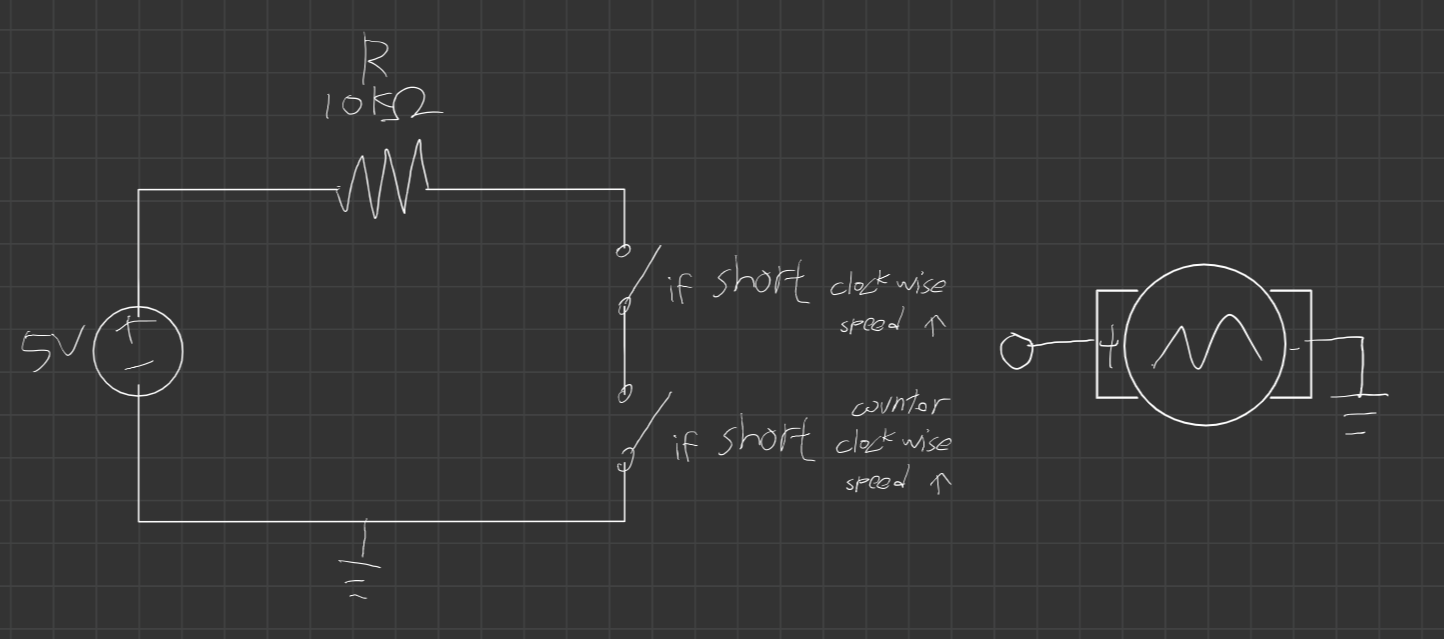 R
10kΩ
5V
+
-
if short clockwise
speed ↑
if short counter
clockwise
speed ↑
+
-